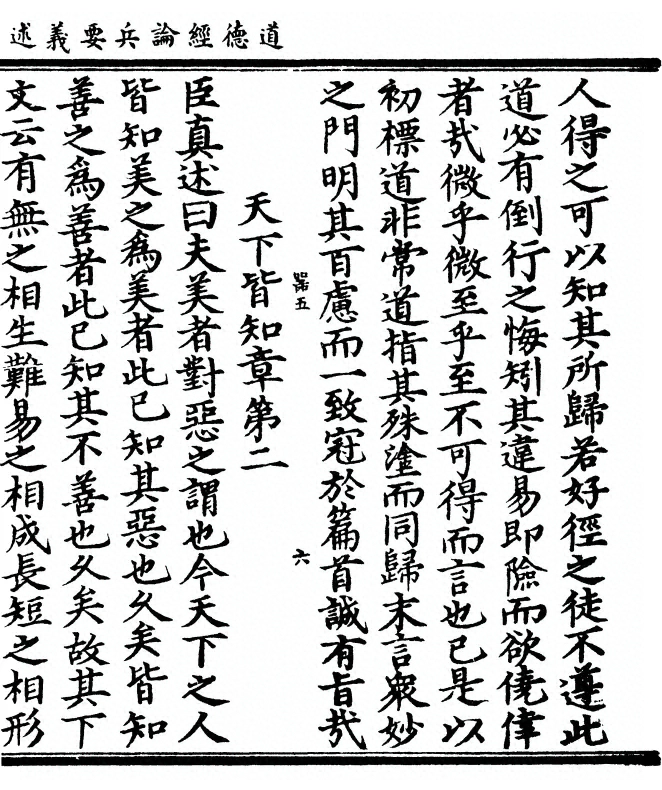 道德經論兵要義述
人得之可以知其所歸若好徑之徒不遵此
道必有倒行之悔矧其違易即險而欲僥倖
者㢤微乎微至乎至不可得而言也已是以
初標道非常道指其殊塗而同歸末言衆妙
之門明其百慮而一致冠於篇首誠有旨㢤
器五
六
天下皆知章第二
臣真述曰夫美者對惡之謂也今天下之人
皆知美之爲美者此已知其惡也久矣皆知
善之爲善者此已知其不善也久矣故其下
文云有無之相生難易之相成長短之相形